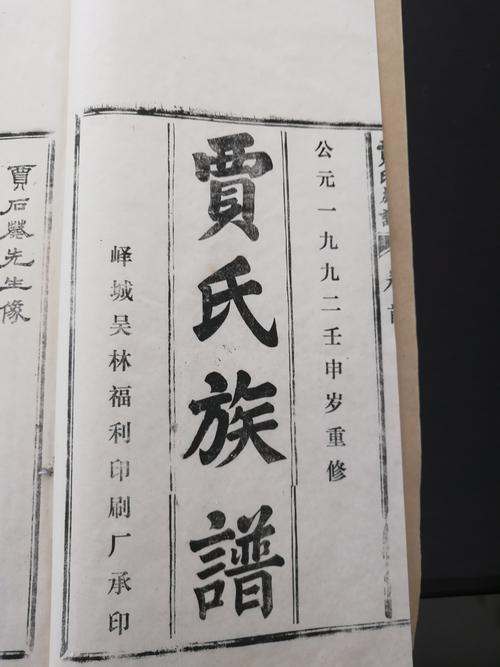 公元一九九二壬申岁重修
賈氏族譜
峄城吴林福利印刷厂承印
賈氏族譜